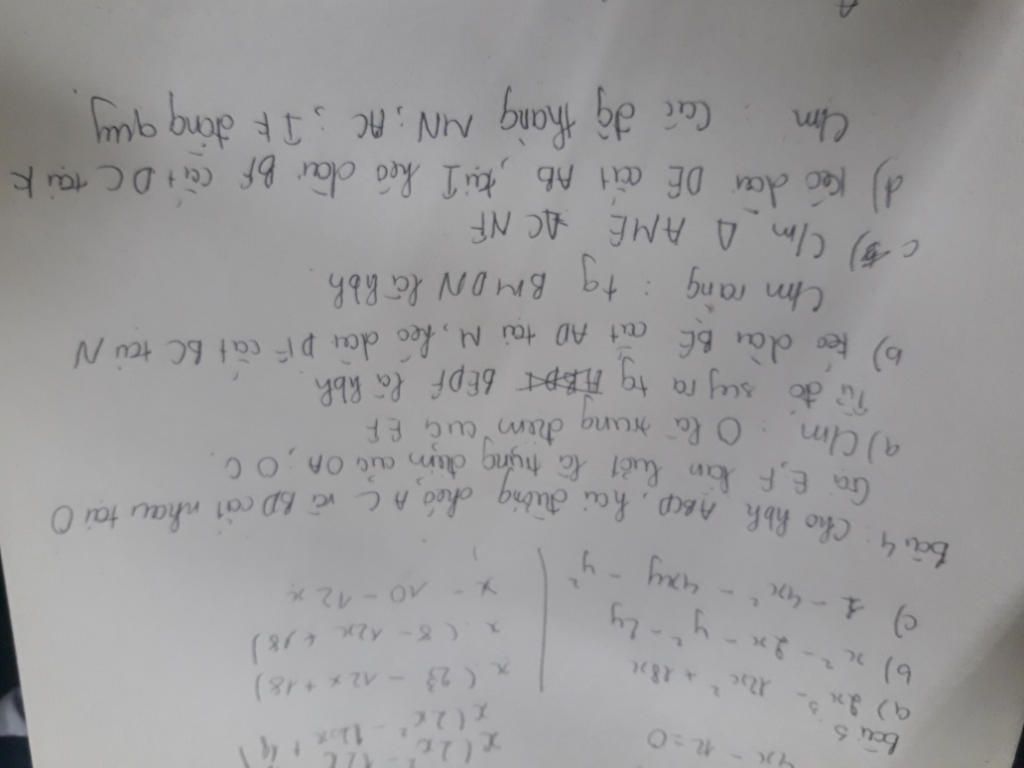 4x - 12 = 0
Bài 3
a) 2x³ - 12x² + 18x
b) x² - 2x - y² - 2y
c) 1 - 4x² - 4xy - y²
x(2x² - 12x
x(23 - 12x + 18)
x.(8 - 12x + 18)
x - 10 - 12x
Bài 4: Cho hbh ABCD, hai đường chéo AC và BD cắt nhau tại O
Gọi E, F lần lượt là trung điểm của OA; OC.
a) C/m: O là trung điểm của EF
Từ đó suy ra tg BEDF là hbh
b) Kéo dài BE cắt AD tại M, kéo dài DF cắt BC tại N
Cm rằng: tg BMDN là hbh.
c) C/m Δ AME CNF
d) Kéo dài DE cắt AB, tại I kéo dài BF cắt DC tại K
Cm: Các đg thẳng MN; AC; IK đồng quy.